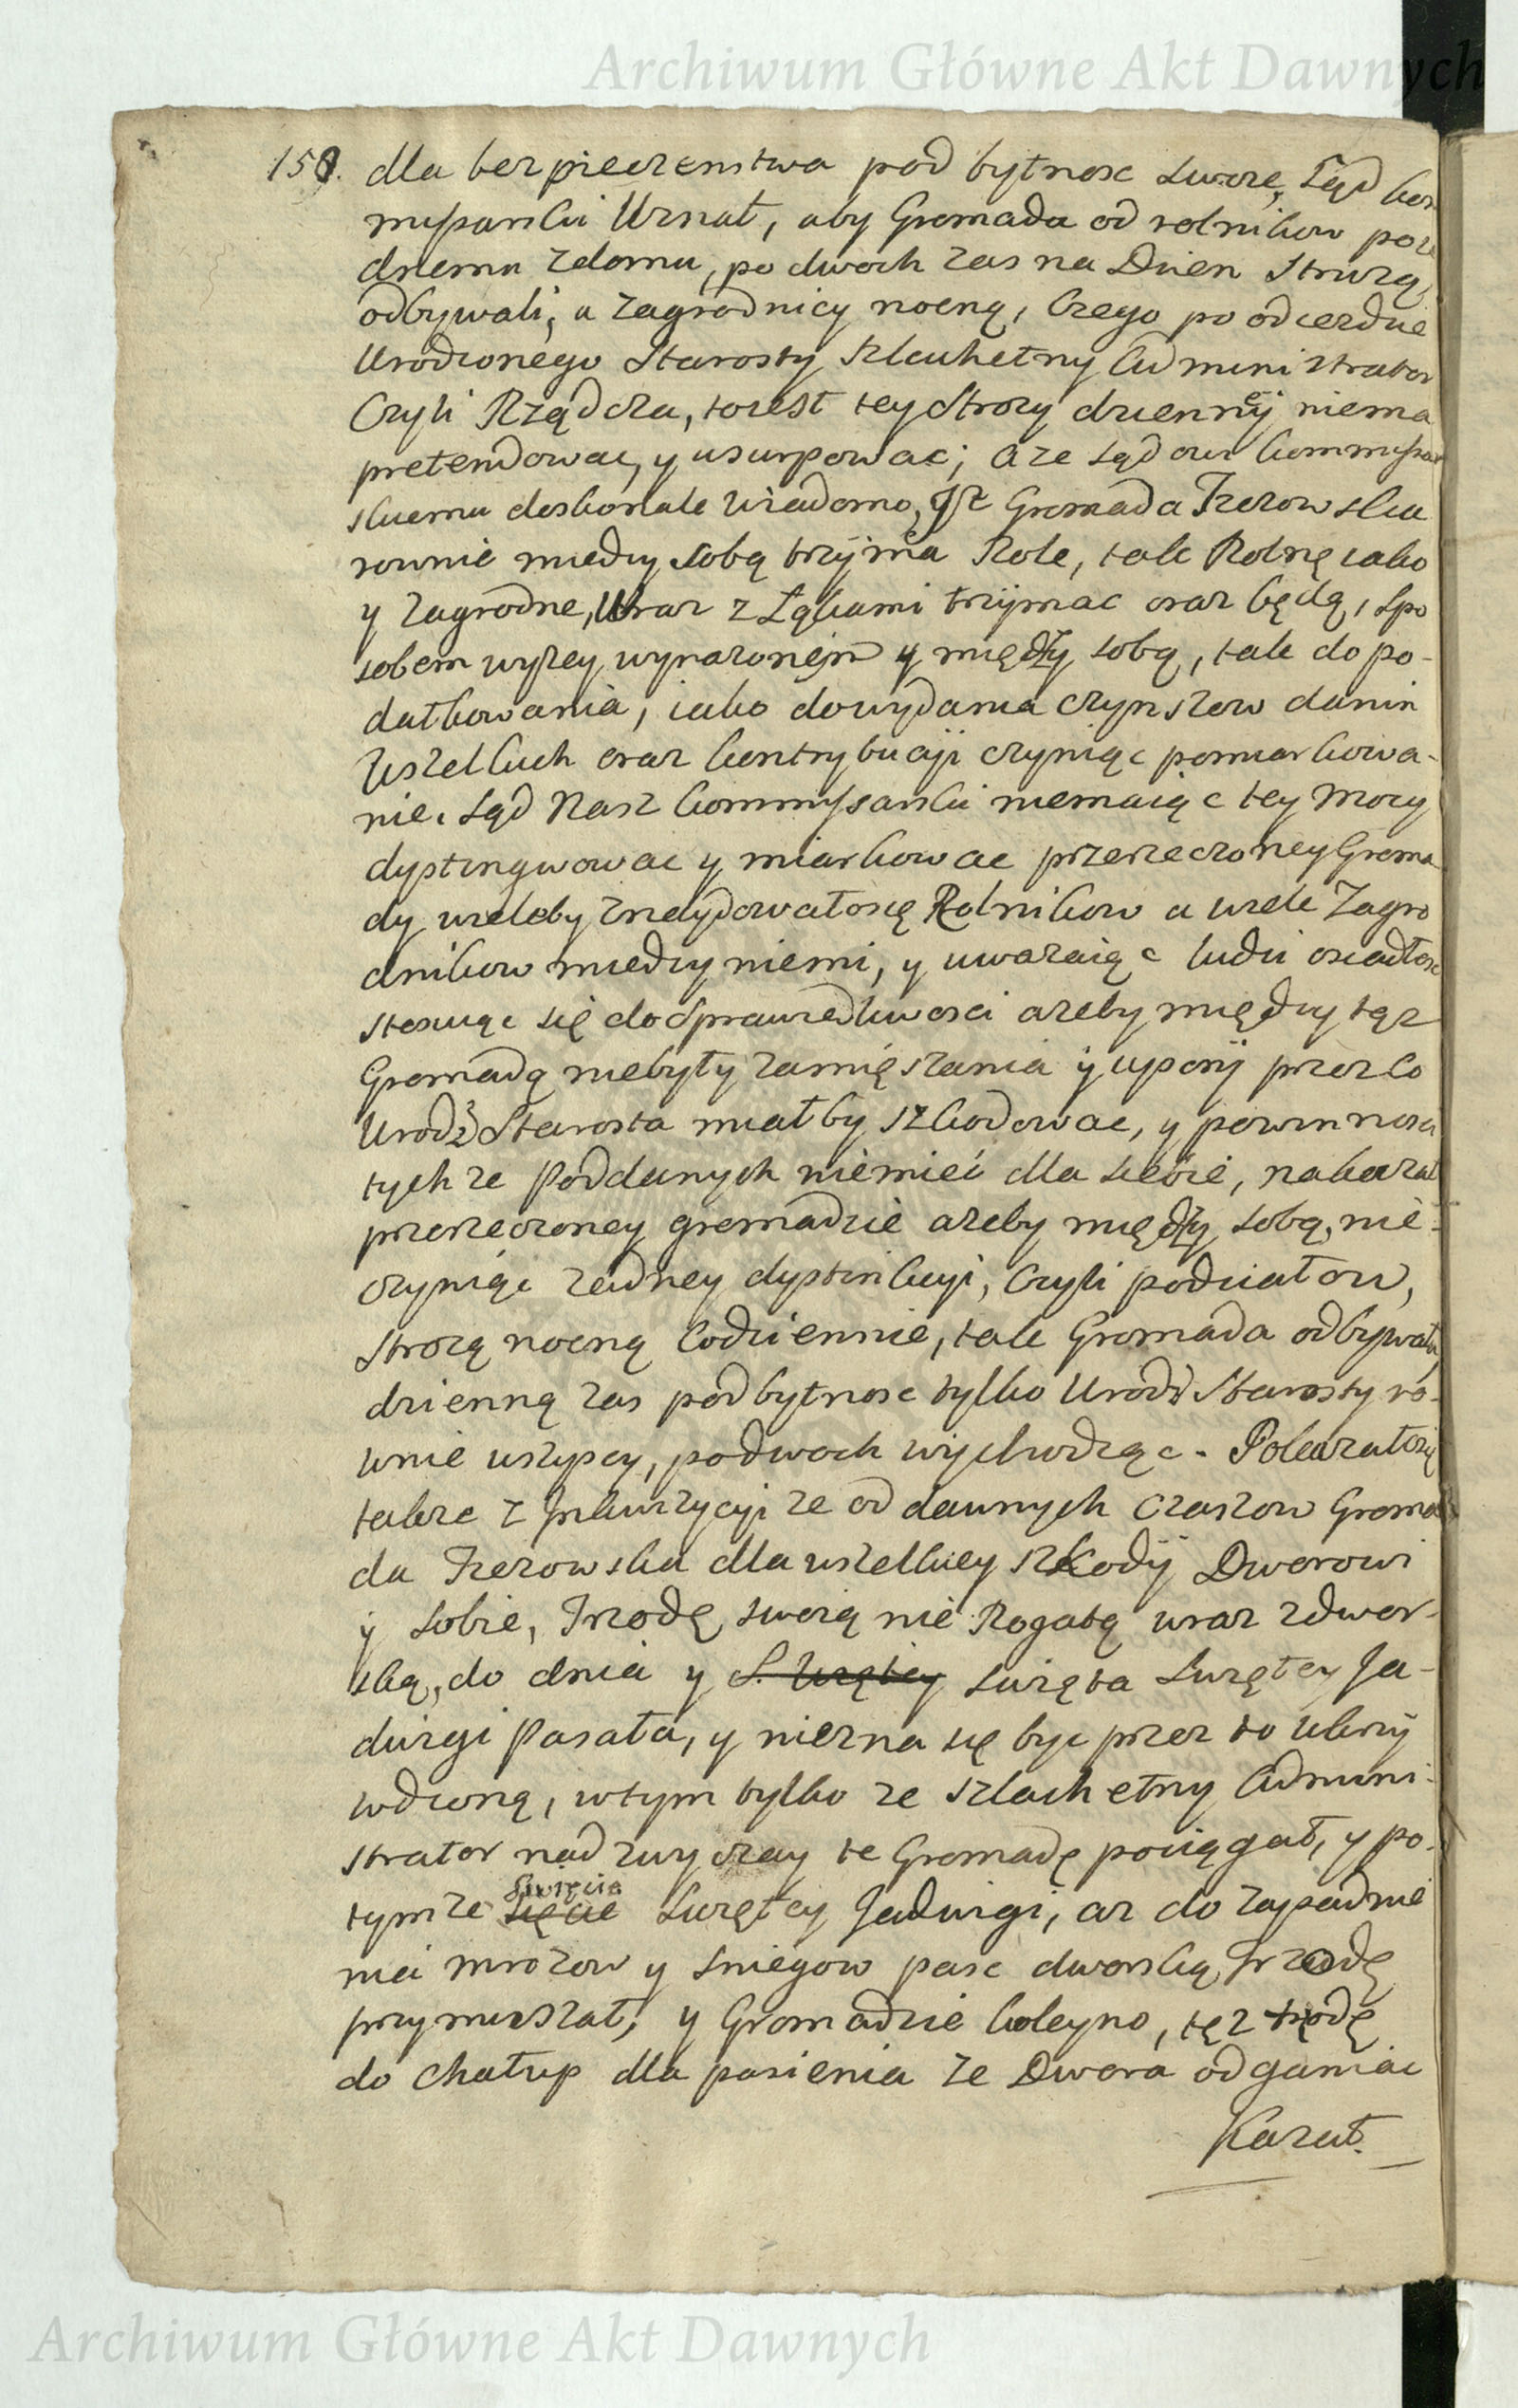 Archiwum Główne Akt Dawnych
158. dla bezpieczenstwa pod bytnosc swoię, Sąd kom
myssarski Uznał, aby Gromada od rolnikow po ie
dnemu zdomu, po dwoch zas na Dzien Strużą
odbywali, a zagrodnicy nocną, Czego po odiezdzie
Urodzonego Starosty Szlachetny Administrator
Czyli Rządcza, toiest tey Strozy dzienney niema
pretendowac, y usurpowac; a ze Sądowi kommyssar
skiemu doskonale Wiadomo, Jż Gromada Jezowska
rownie miedzy sobą trzyma Role, tak Rolnę iako
y zagrodne, Wraz z Łąkami trzymac oraz będą, spo
sobem wyzey wyrazonem y między sobą, tak do po-
datkowania, iako dowydania czynszow danin
Wszelkich oraz kontrybucyi czyniąc pomiarkowa-
nie. Sąd Nasz kommyssarski niemaiąc tey Mocy
dystyngwowac y miarkowac przerzeczoney Groma
dy wieleby znaydowałosię Rolnikow a wiele Zagro
dnikow miedzy niemi, y uwazaiąc ludzi osiadłosc
stosuiąc się do Sprawiedliwosci azeby między tąz
Gromadą niebyły zamięszania y upory przez co
Urodz Starosta miałby szkodowac, y powinnosci
tychze Poddanych niemieć dla siebie, nakazał
przerzeczoney gromadzie azeby między sobą, nie-
czyniąc zadney dystinkcyi, Czyli podziałow,
strozą nocną Codziennie, tak Gromada odbywała,
dzienną zas pod bytnosc tylko Urodz Starosty ro-
wnie wszyscy, podwoch wychodząc. Pokazałosię
takze z Jnkwizycyi ze od dawnych czasow Groma
da Jezowska dla wszelkiey szkody Dworowi
y sobie, Trzodę swoią nie Rogatą wraz zdwor-
ską, do dnia y S. Więtey swięta Swiętey Ja-
dwigi Pasała, y niezna się byc przez to ukrzy
wdzoną, wtym tylko ze szlachetny Admini-
strator nad zwyczay te Gromadę pociągał, y po-
tymze Swięcie Swiętey Jadwigi, az do zapadnie
nia mrozow y sniegow pasc dworską Trzodę
przymuszał, y Gromadzie koleyno, tęz trzodę
do chałup dla pasienia ze Dwora odganiac
Kazał.
Archiwum Główne Akt Dawnych